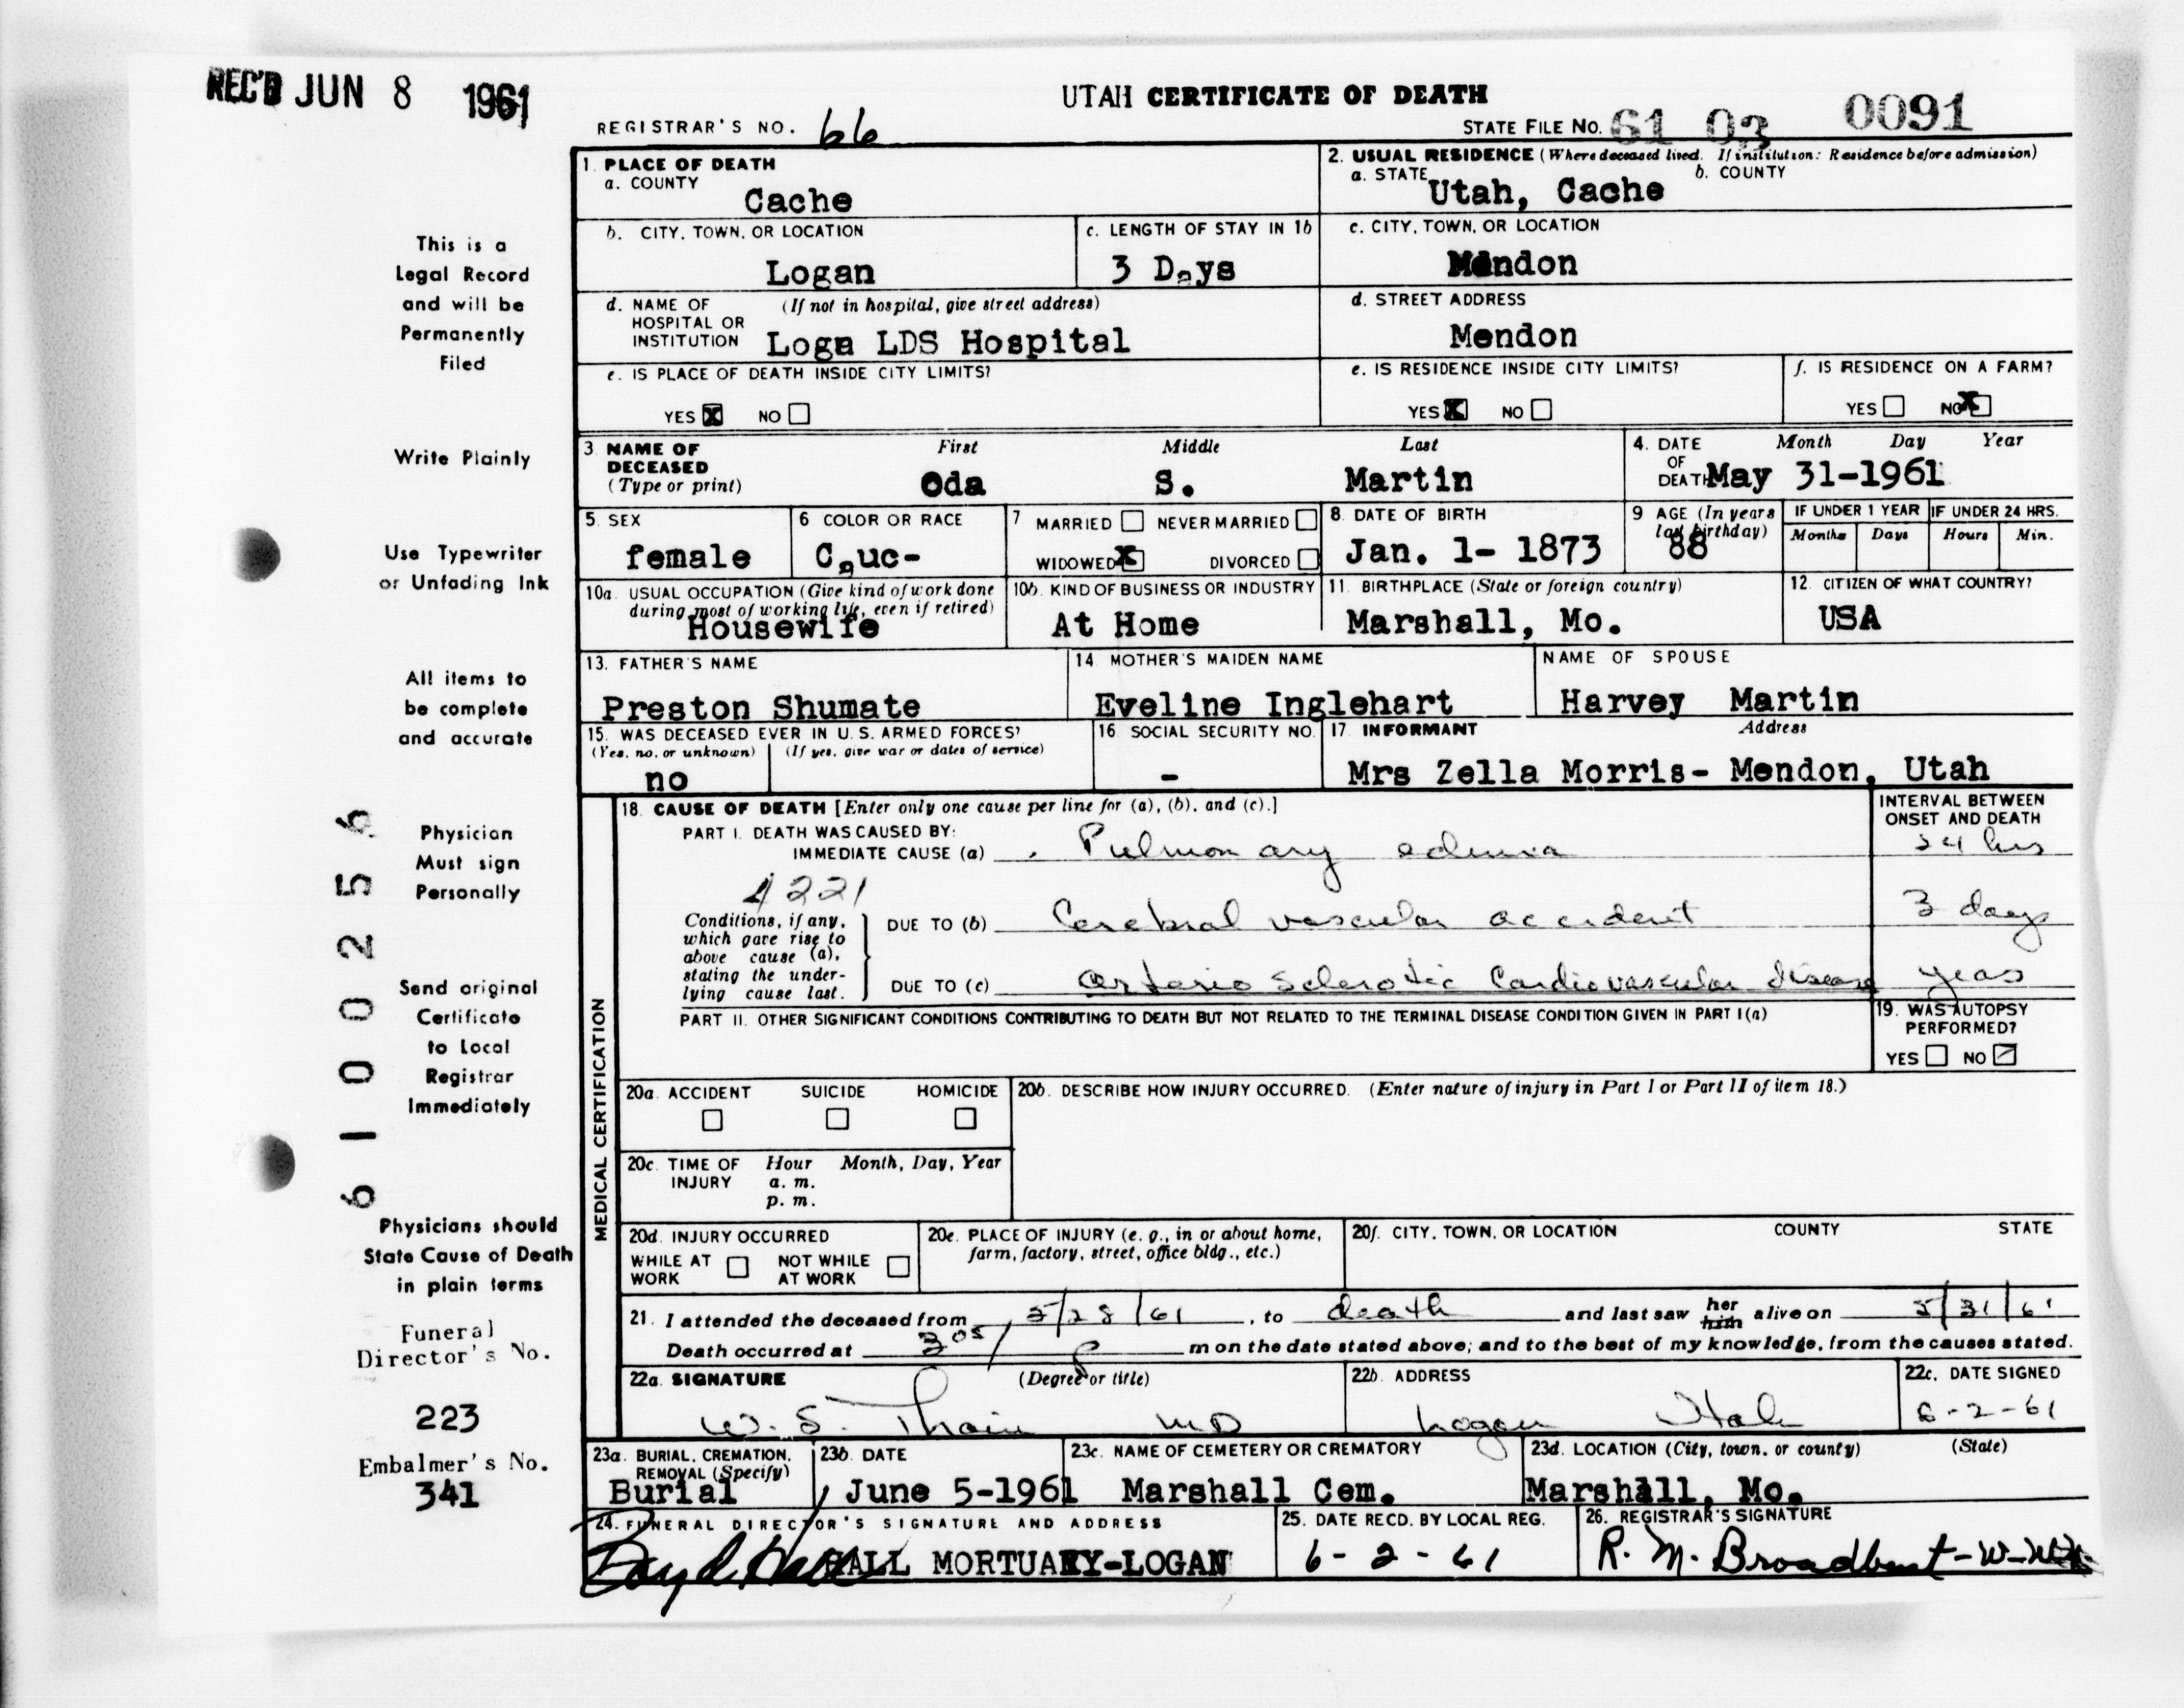 REC'D JUN 8 1961
UTAH CERTIFICATE OF DEATH
REGISTRAR'S NO. 66
STATE FILE NO. 61 03 0091
1. PLACE OF DEATH
a. COUNTY
Cache
2. USUAL RESIDENCE (Where deceased lived. If institution: Residence before admission)
a. STATE b. COUNTY
Utah, Cache
b. CITY, TOWN, OR LOCATION
Logan
c. LENGTH OF STAY IN 1b
3 Days
c. CITY, TOWN, OR LOCATION
Mendon
d. NAME OF HOSPITAL OR INSTITUTION (If not in hospital, give street address)
Loga LDS Hospital
d. STREET ADDRESS
Mendon
e. IS PLACE OF DEATH INSIDE CITY LIMITS?
YES X NO
e. IS RESIDENCE INSIDE CITY LIMITS?
YES X NO
f. IS RESIDENCE ON A FARM?
YES NO X
3. NAME OF DECEASED (Type or print)
First Middle Last
Oda S. Martin
4. DATE OF DEATH Month Day Year
May 31-1961
5. SEX
female
6 COLOR OR RACE
Cauc-
7 MARRIED NEVER MARRIED
WIDOWED X DIVORCED
8. DATE OF BIRTH
Jan. 1- 1873
9 AGE (In years last birthday)
88
IF UNDER 1 YEAR IF UNDER 24 HRS.
Months Days Hours Min.
10a. USUAL OCCUPATION (Give kind of work done during most of working life, even if retired)
Housewife
10b. KIND OF BUSINESS OR INDUSTRY
At Home
11. BIRTHPLACE (State or foreign country)
Marshall, Mo.
12. CITIZEN OF WHAT COUNTRY?
USA
13. FATHER'S NAME
Preston Shumate
14. MOTHER'S MAIDEN NAME
Eveline Inglehart
NAME OF SPOUSE
Harvey Martin
15. WAS DECEASED EVER IN U.S. ARMED FORCES?
(Yes, no, or unknown) (If yes, give war or dates of service)
no
16. SOCIAL SECURITY NO.
-
17. INFORMANT Address
Mrs Zella Morris- Mendon, Utah
MEDICAL CERTIFICATION
18. CAUSE OF DEATH [Enter only one cause per line for (a), (b), and (c).]
INTERVAL BETWEEN ONSET AND DEATH
PART I. DEATH WAS CAUSED BY:
IMMEDIATE CAUSE (a) Pulmonary edema 24 hrs
4221
Conditions, if any, which gave rise to above cause (a), stating the underlying cause last.
DUE TO (b) Cerebral vascular accident 3 days
DUE TO (c) arterio sclerotic Cardiovascular disease years
PART II. OTHER SIGNIFICANT CONDITIONS CONTRIBUTING TO DEATH BUT NOT RELATED TO THE TERMINAL DISEASE CONDITION GIVEN IN PART I(a)
19. WAS AUTOPSY PERFORMED?
YES NO
20a. ACCIDENT SUICIDE HOMICIDE
20b. DESCRIBE HOW INJURY OCCURRED. (Enter nature of injury in Part I or Part II of item 18.)
20c. TIME OF INJURY Hour Month, Day, Year
a. m.
p. m.
20d. INJURY OCCURRED
WHILE AT WORK NOT WHILE AT WORK
20e. PLACE OF INJURY (e. g., in or about home, farm, factory, street, office bldg., etc.)
20f. CITY, TOWN, OR LOCATION COUNTY STATE
21. I attended the deceased from 5/28/61, to death and last saw her him alive on 5/31/61
Death occurred at 305 P m on the date stated above; and to the best of my knowledge, from the causes stated.
22a. SIGNATURE (Degree or title)
W. S. Thain MD
22b. ADDRESS
Logan Utah
22c. DATE SIGNED
6-2-61
23a. BURIAL, CREMATION, REMOVAL (Specify)
Burial
23b. DATE
June 5-1961
23c. NAME OF CEMETERY OR CREMATORY
Marshall Cem.
23d. LOCATION (City, town, or county) (State)
Marshall, Mo.
24. FUNERAL DIRECTOR'S SIGNATURE AND ADDRESS
HALL MORTUARY-LOGAN
25. DATE RECD. BY LOCAL REG.
6-2-61
26. REGISTRAR'S SIGNATURE
R. M. Broadbent
This is a
Legal Record
and will be
Permanently
Filed
Write Plainly
Use Typewriter
or Unfading Ink
All items to
be complete
and accurate
Physician
Must sign
Personally
Send original
Certificate
to Local
Registrar
Immediately
Physicians should
State Cause of Death
in plain terms
Funeral
Director's No.
223
Embalmer's No.
341
6100256